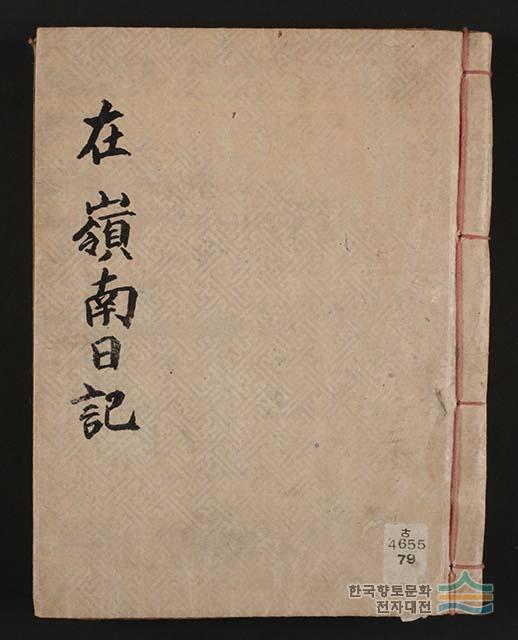 在嶺南日記
古
4655
79
한국향토문화
전자대전